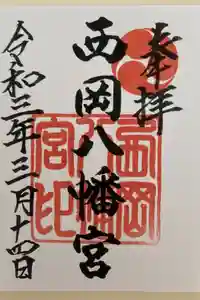 奉拝
西岡八幡宮
西岡八幡宮印
令和三年三月十四日